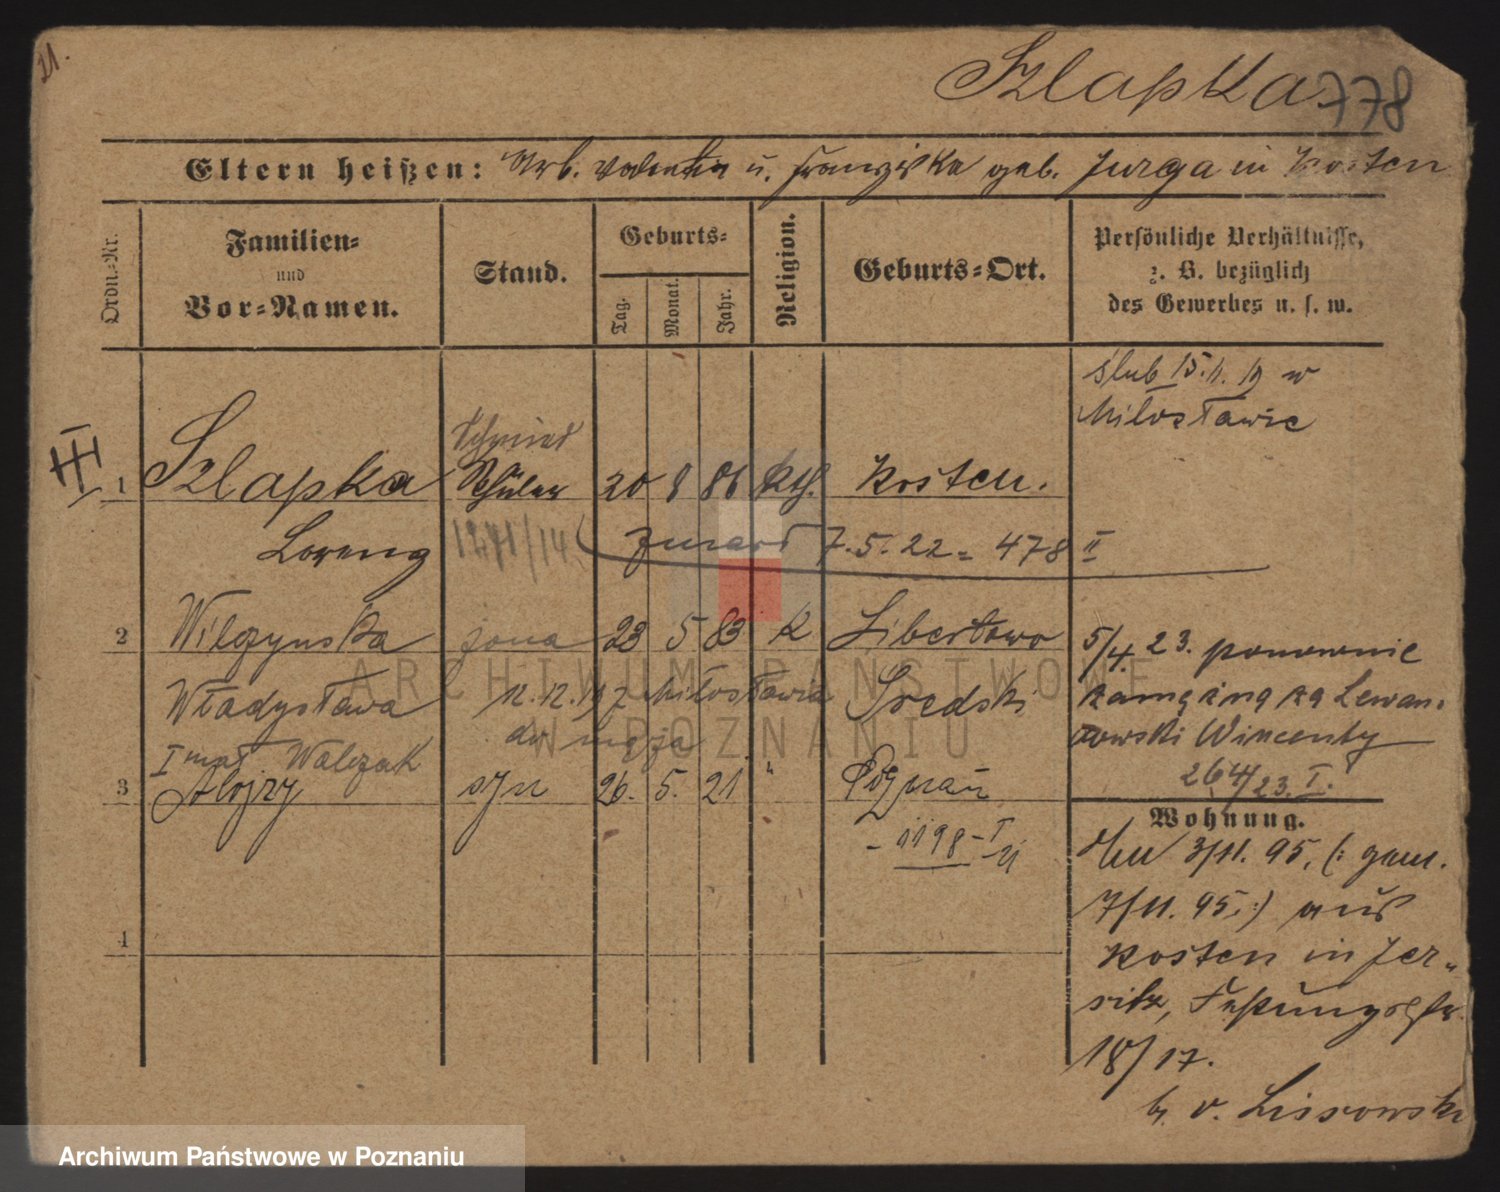 21.
Szlapka 778
Eltern heißen: Arb. Valentin u. Franziska geb. Jurga in Kosten
Ordn.-Nr.
Familien- und Vor-Namen.
Stand.
Geburts-
Tag.
Monat.
Jahr.
Religion.
Geburts-Ort.
Persönliche Verhältnisse,
z. B. bezüglich
des Gewerbes u. s. w.
ślub 15.11.19 w
Miłosławie
III
Schmied
1 Szlapka Schüler 20 8 86 kth. Kosten.
Lorenz 1271/14 7.5.22 = 478 II
2 Wilczynska żona 23 5 83 K Libertowo
Władysława Miłosławia Sredski
I mał Walczak
5/4. 23. ponownie
zamężna za Lewan-
dowski Wincenty
264/23. I.
3 Alojzy syn 26. 5. 21. " Poznań
- 1198 - I
21
4
Wohnung.
3/11. 95. (: gem.
7/11. 95. :) aus
Kosten in Jer-
sitz, Festungsstr.
18/17.
b. v. Lissowski
ARCHIWUM PAŃSTWOWE
W POZNANIU
Archiwum Państwowe w Poznaniu